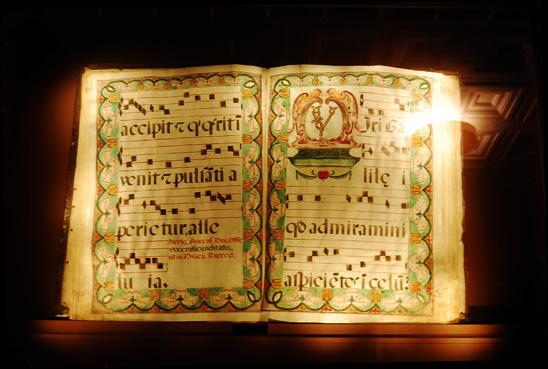 accipit ⁊ q̃ q̃rit i
venit ⁊ pulsãti a
perietur, alle
lu ia.
V iri Ga
lilę i
qd admiramini
aspiciẽtes i celũ?